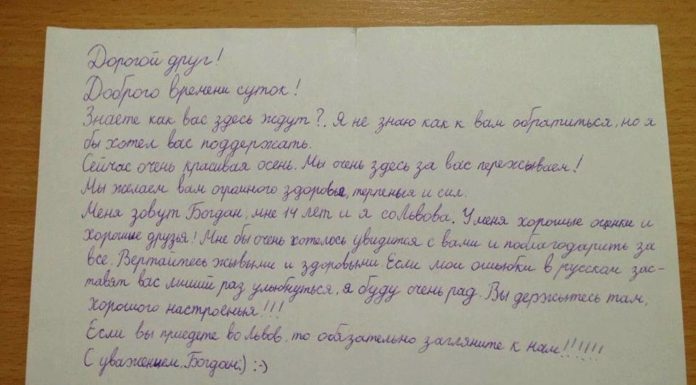 Дорогой друг!
Доброго времени суток!
Знаете как вас здесь ждут?. Я не знаю как к вам обратиться, но я
бы хотел вас поддержать.
Сейчас очень красивая осень. Мы очень здесь за вас пережываем!
Мы желаем вам огромного здоровье, терпеныя и сил.
Меня зовут Богдан, мне 14 лет и я со Львова. У меня хорошые оценки и
хорошые друзья! Мне бы очень хотелось увидится с вами и поблагодарить за
все. Вертайтесь жывыми и здоровыми. Если мои ошыбки в русском зас-
тавят вас лишний раз улыбнуться, я буду очень рад. Вы держытесь там,
хорошого настроеныя!!!
Если вы приедете во Львов, то обязательно загляните к нам!!!!!!!
С уваженыем, Богдан:) :-)